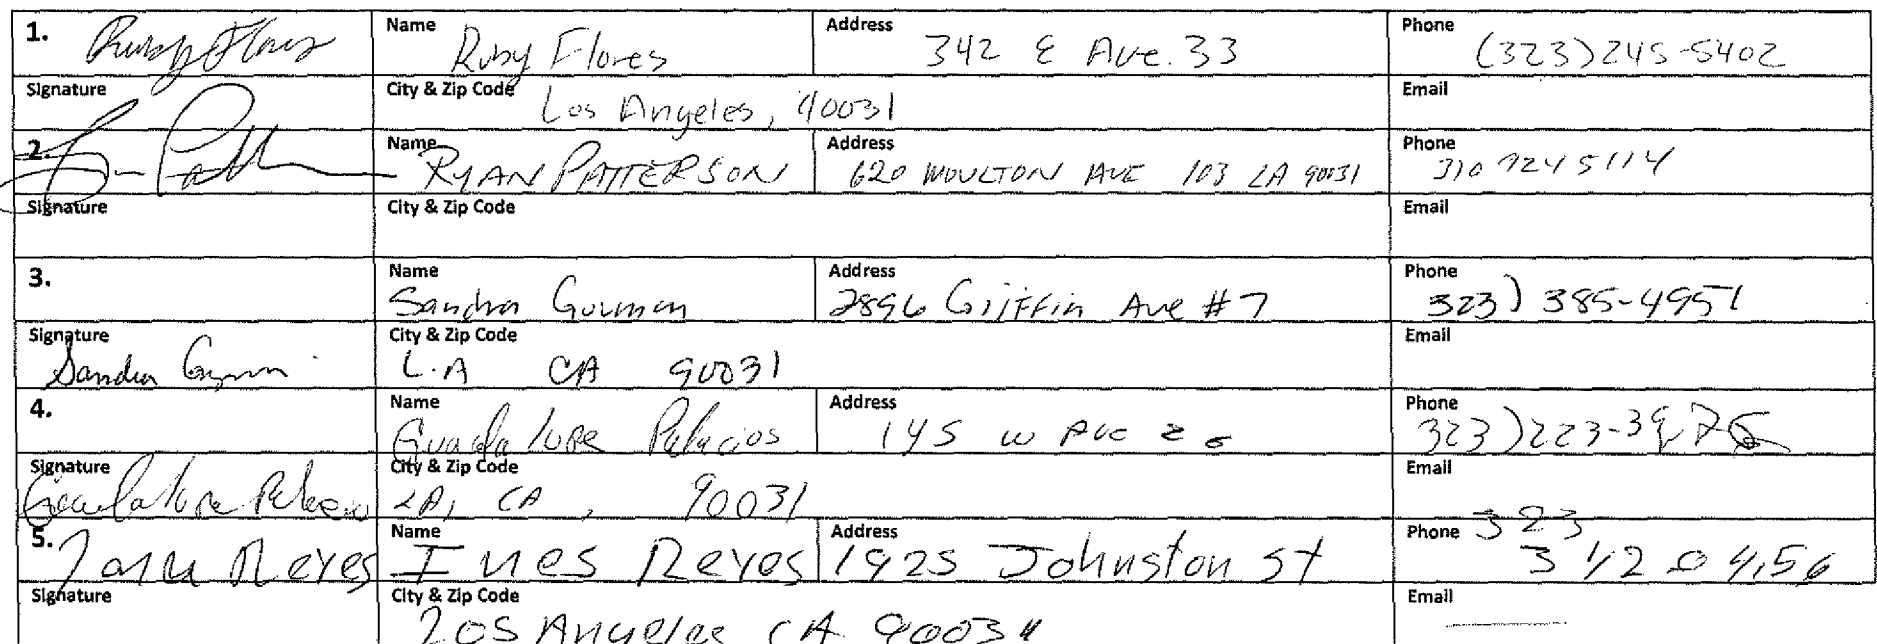 1. Ruby Flores Name Ruby Flores Address 342 E Ave. 33 Phone (323) 245-5402
Signature City & Zip Code Los Angeles, 90031 Email
2. Name RYAN PATTERSON Address 620 MOULTON AVE 103 LA 90031 Phone 310 924 5114
Signature City & Zip Code Email
3. Name Sandra Guzman Address 2896 Griffin Ave #7 Phone 323) 385-4951
Signature Sandra Guzman City & Zip Code L.A CA 90031 Email
4. Name Guadalupe Palacios Address 145 W Ave 26 Phone 323) 223-39
Signature Guadalupe Palacios City & Zip Code LA, CA, 90031 Email
5. Reyes Name Ines Reyes Address 1925 Johnston St Phone 323
Signature City & Zip Code Los Angeles CA 90031 Email